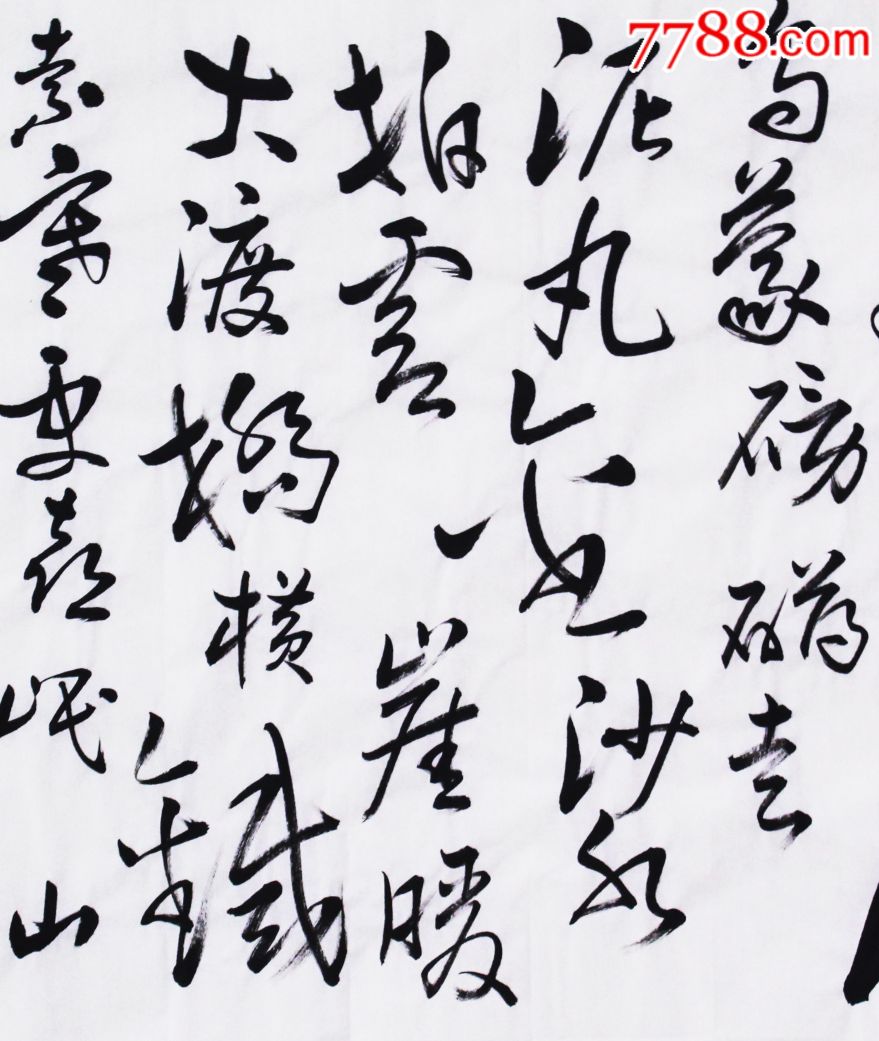 7788.com
乌蒙磅礴走
泥丸金沙水
拍云崖暖
大渡桥横铁
索寒更喜岷山